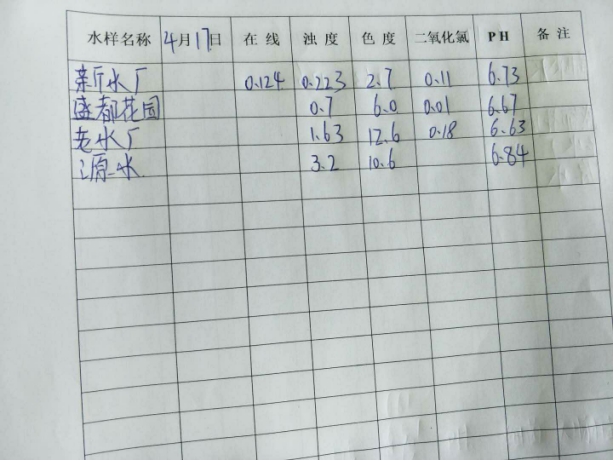 水样名称 4月17日 在线 浊度 色度 二氧化氯 PH 备注
新水厂 0.124 0.223 2.7 0.11 6.73
盛都花园 0.7 6.0 0.01 6.67
老水厂 1.63 12.6 0.18 6.63
源水 3.2 10.6 6.84